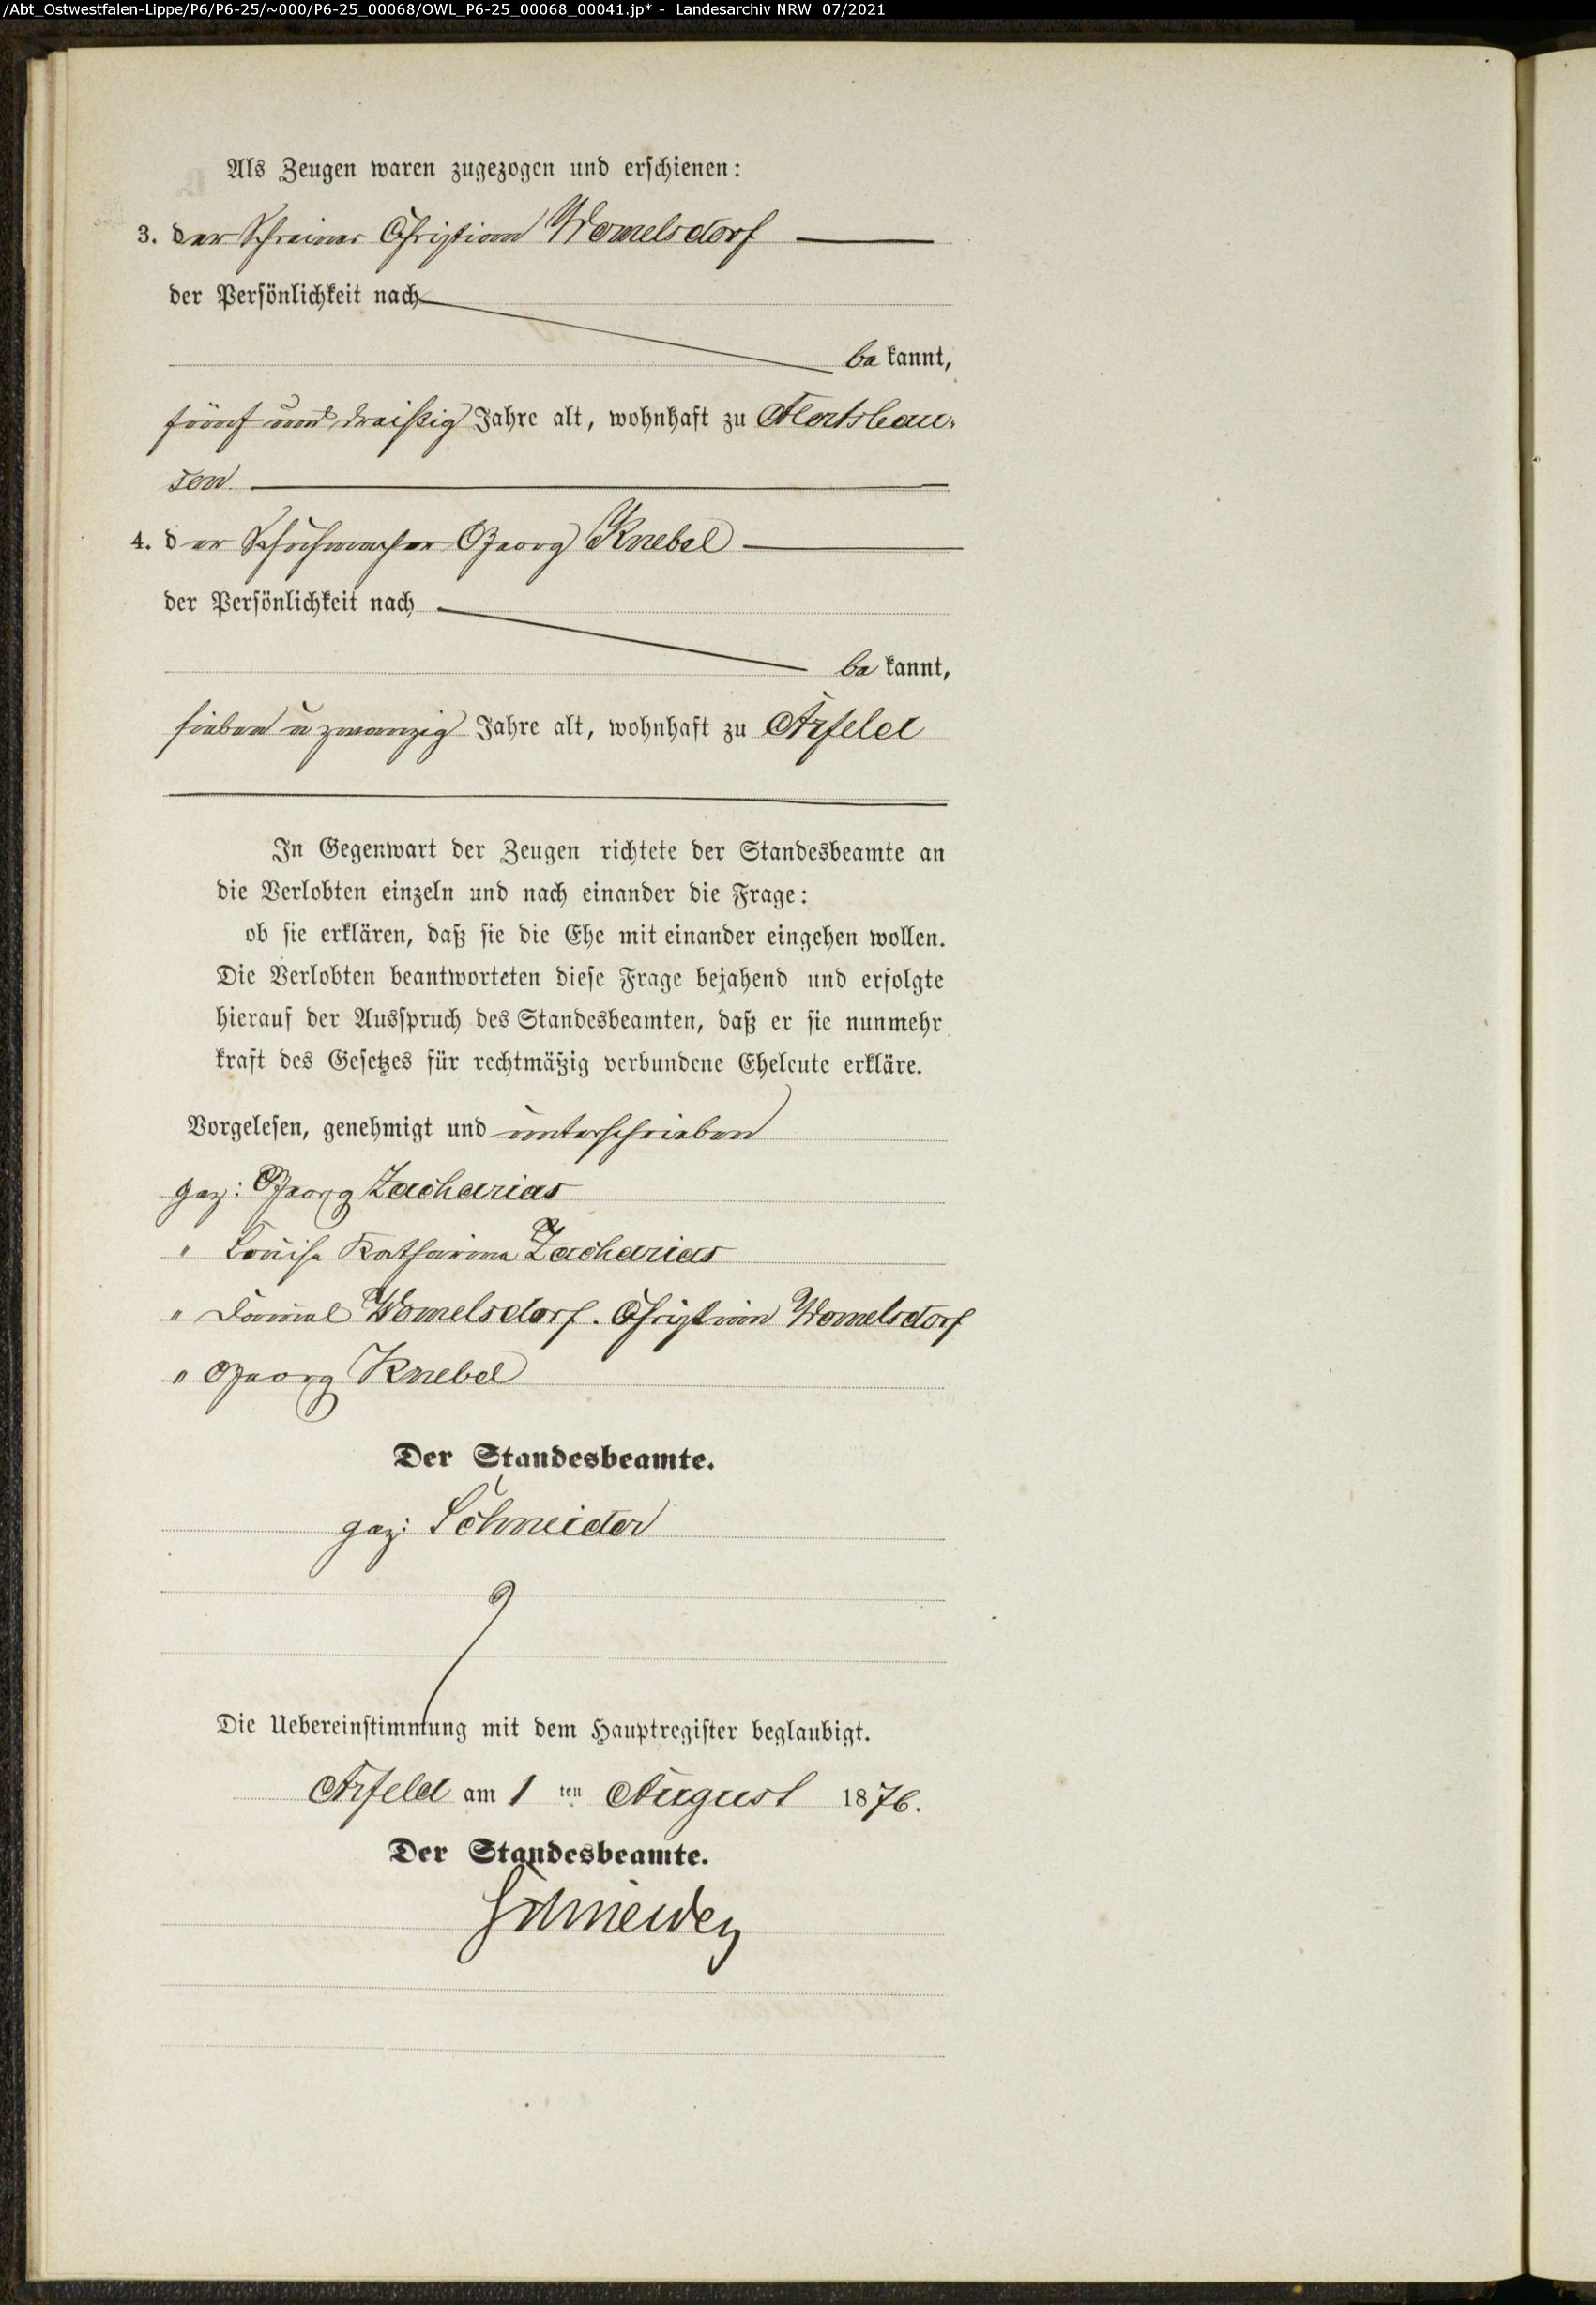 /Abt_Ostwestfalen-Lippe/P6/P6-25/~000/P6-25_00068/OWL_P6-25_00068_00041.jp* - Landesarchiv NRW 07/2021
Als Zeugen waren zugezogen und erschienen:
3. der Schreiner Christian Womelsdorf
der Persönlichkeit nach
be kannt,
fünf und dreißig Jahre alt, wohnhaft zu Alertshau-
sen
4. der Schuhmacher Georg Knebel
der Persönlichkeit nach
be kannt,
sieben u zwanzig Jahre alt, wohnhaft zu Arfeld
In Gegenwart der Zeugen richtete der Standesbeamte an
die Verlobten einzeln und nach einander die Frage:
ob sie erklären, daß sie die Ehe mit einander eingehen wollen.
Die Verlobten beantworteten diese Frage bejahend und erfolgte
hierauf der Ausspruch des Standesbeamten, daß er sie nunmehr
kraft des Gesetzes für rechtmäßig verbundene Eheleute erkläre.
Vorgelesen, genehmigt und unterschrieben
gez: Georg Zacharias
" Louise Katharina Zacharias
" Daniel Womelsdorf. Christian Womelsdorf
" Georg Knebel
Der Standesbeamte.
gez: Schneider
Die Uebereinstimmung mit dem Hauptregister beglaubigt.
Arfeld am 1 ten August 1876.
Der Standesbeamte.
Schneider